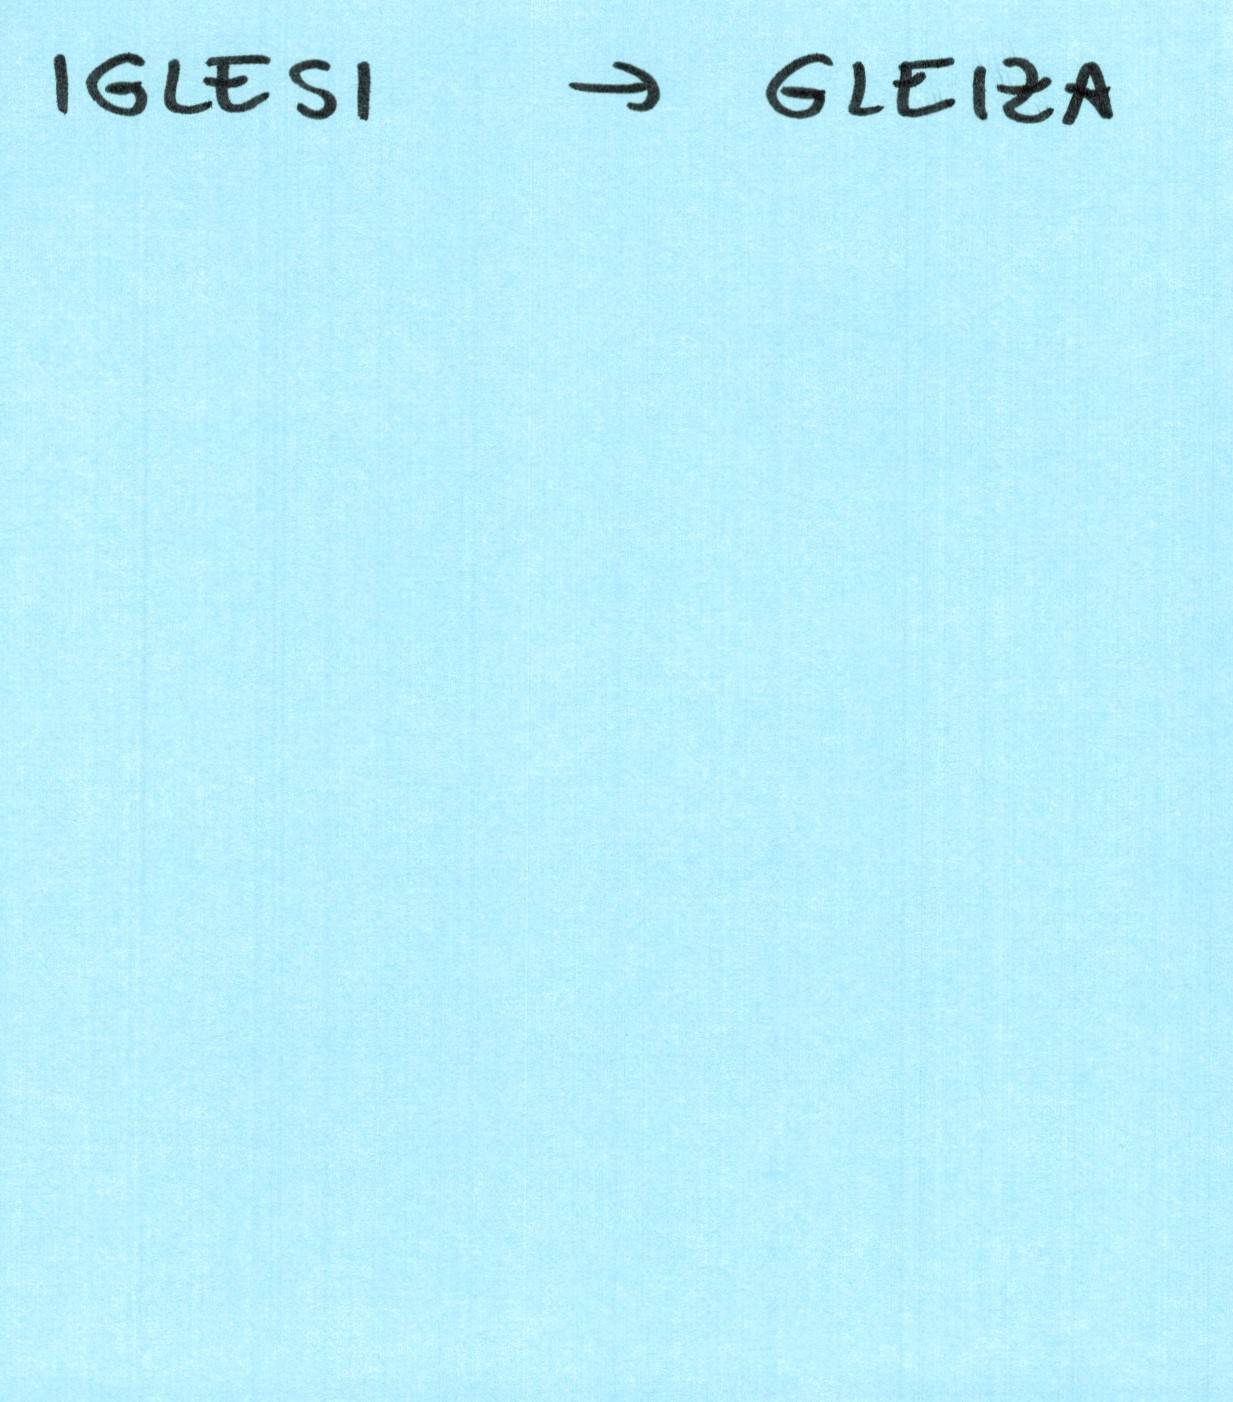 IGLESI → GLEIZA